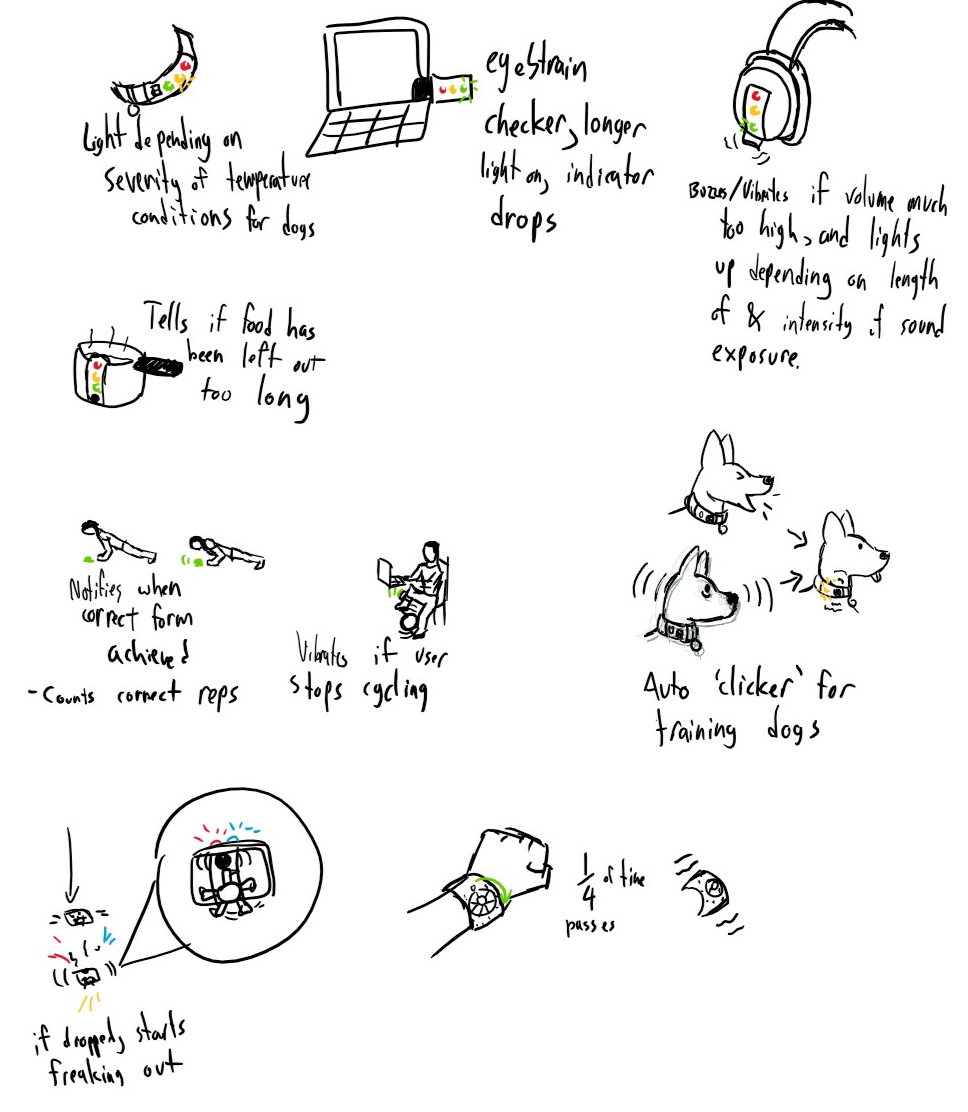 Light depending on
severity of temperature
conditions for dogs
eyestrain
checker, longer
light on, indicator
drops
Buzzes/Vibrates if volume much
too high, and lights
up depending on length
of & intensity of sound
exposure.
Tells if food has
been left out
too long
Notifies when
correct form
achieved
- Counts correct reps
Vibrates if user
stops cycling
Auto 'clicker' for
training dogs
if dropped, starts
freaking out
1/4 of time
passes